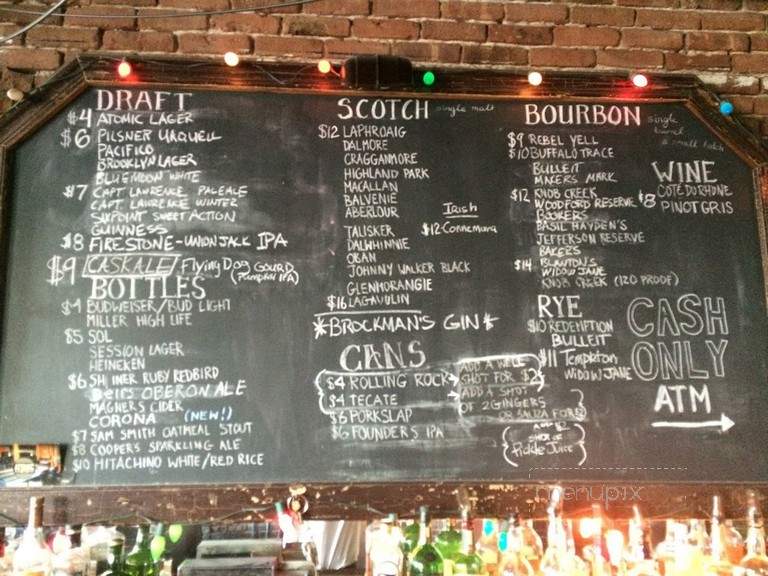 DRAFT
$4 ATOMIC LAGER
$6 PILSNER URQUELL
PACIFICO
BROOKLYN LAGER
BLUE MOON WHITE
$7 CAPT LAWRENCE PALE ALE
CAPT. LAWRENCE WINTER
SIXPOINT SWEET ACTION
GUINNESS
$8 FIRESTONE - UNION JACK IPA
$9 CASK ALE Flying Dog GOURD
(Pumpkin IPA)
BOTTLES
$4 BUDWEISER/BUD LIGHT
MILLER HIGH LIFE
$5 SOL
SESSION LAGER
HEINEKEN
$6 SHINER RUBY REDBIRD
Bells OBERON ALE
MAGNERS CIDER
CORONA (NEW!)
$7 SAM SMITH OATMEAL STOUT
$8 COOPERS SPARKLING ALE
$10 HITACHINO WHITE/RED RICE
SCOTCH single malt
$12 LAPHROAIG
DALMORE
CRAGGANMORE
HIGHLAND PARK
MACALLAN
BALVENIE
ABERLOUR
TALISKER
DALWHINNIE
OBAN
JOHNNY WALKER BLACK
GLENMORANGIE
$16 LAGAVULIN
Irish
$12 Connemara
*BROCKMAN'S GIN*
CANS
$4 ROLLING ROCK
$4 TECATE
$6 PORKSLAP
$6 FOUNDERS IPA
ADD A WELL
SHOT FOR $2
ADD A SHOT
OF 2 GINGERS
OR SAUZA FOR
SHOT OF
Pickle Juice
BOURBON single
barrel
& small batch
$9 REBEL YELL
$10 BUFFALO TRACE
BULLEIT
MAKERS MARK
$12 KNOB CREEK
WOODFORD RESERVE
BOOKERS
BASIL HAYDEN'S
JEFFERSON RESERVE
BAKERS
$14 BLANTONS
WIDOW JANE
KNOB CREEK (120 PROOF)
RYE
$10 REDEMPTION
BULLEIT
$11 Templeton
WIDOW JANE
WINE
$8 COTE DU RHONE
PINOT GRIS
CASH
ONLY
ATM
menupix